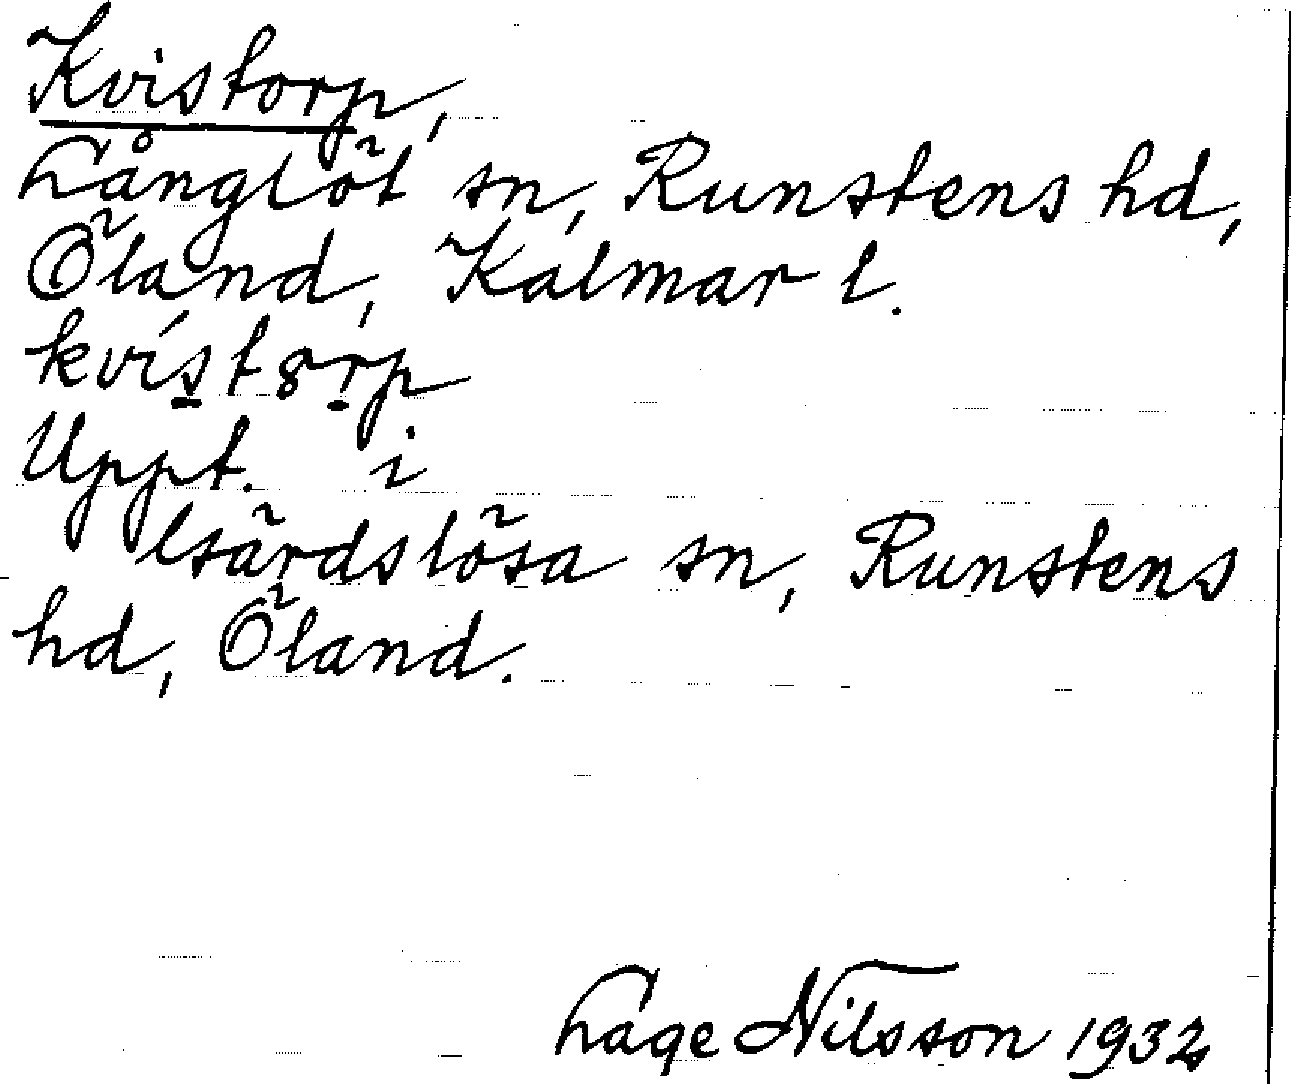 Kvistorp,
Långlöt sn, Runstens hd,
Öland, Kalmar l.
kvís̠t8r̠p
Uppt. i
Gärdslösa sn, Runstens
hd, Öland.
Lage Nilsson 1932